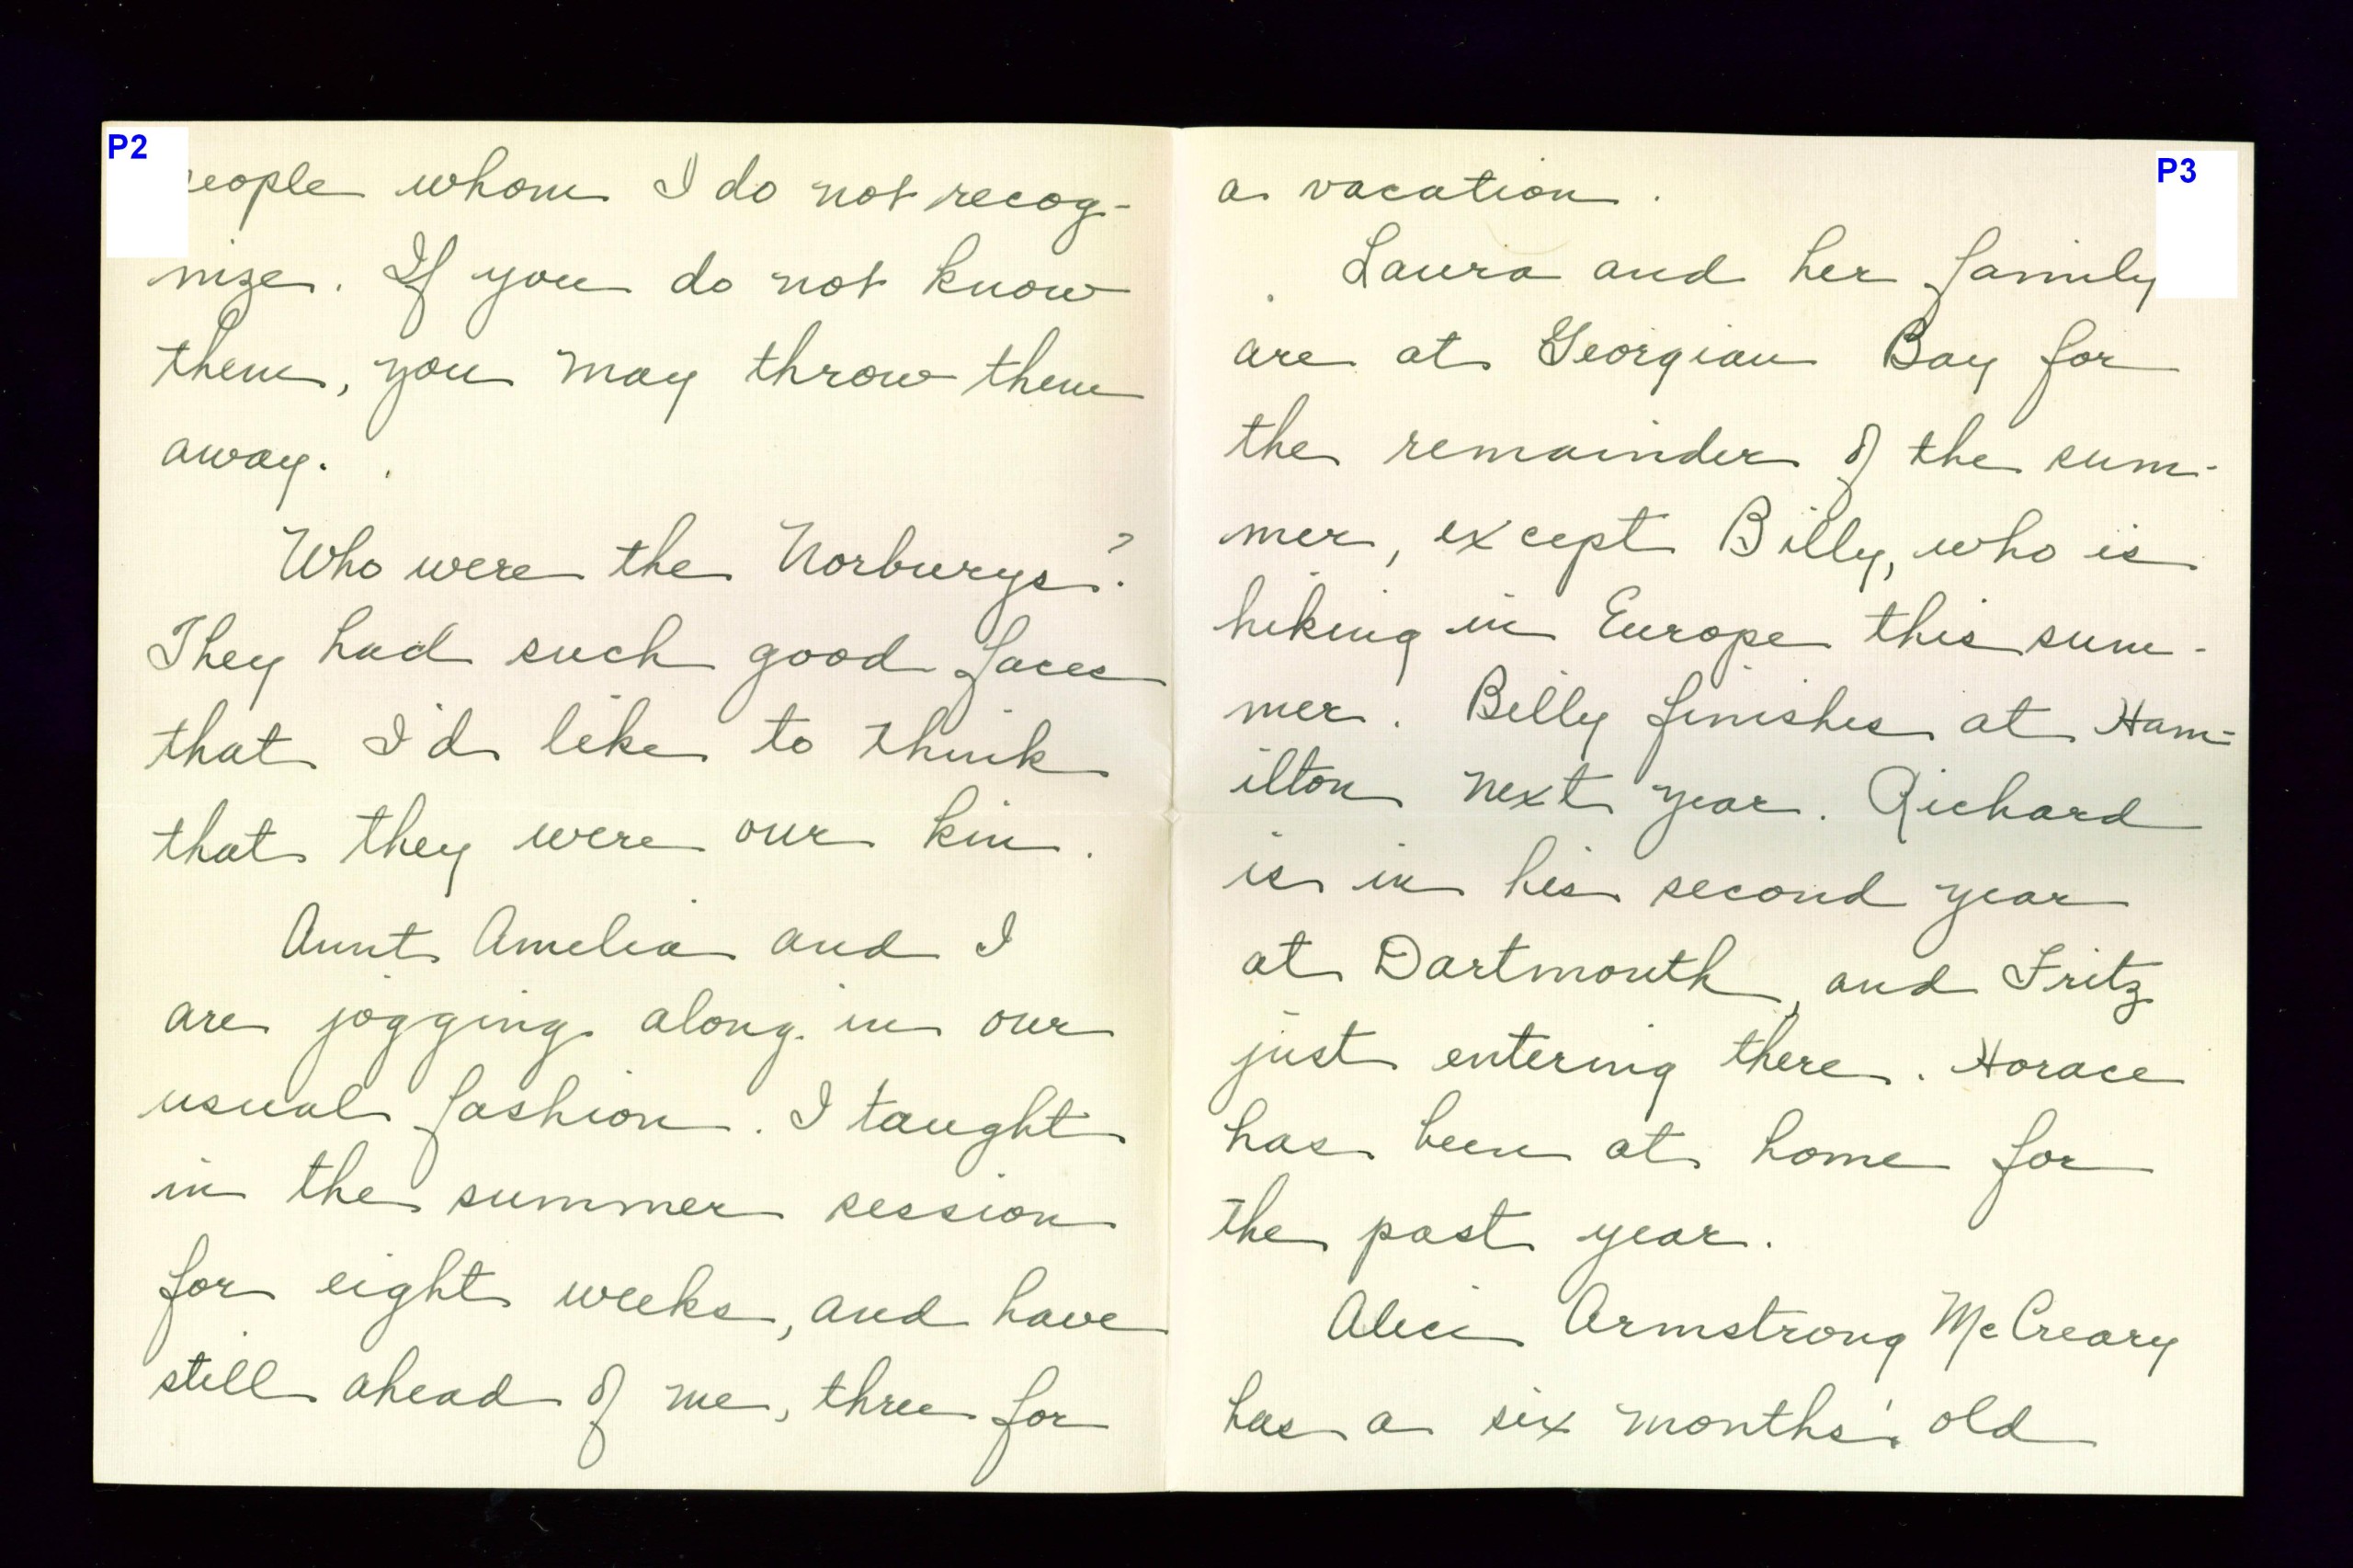 P2
people whom I do not recog-
nize. If you do not know
them, you may throw them
away.
Who were the Norburys?
They had such good faces
that I'd like to think
that they were our kin.
Aunt Amelia and I
are jogging along in our
usual fashion. I taught
in the summer session
for eight weeks, and have
still ahead of me, three for
P3
a vacation.
Laura and her family
are at Georgian Bay for
the remainder of the sum-
mer, except Billy, who is
hiking in Europe this sum-
mer. Billy finishes at Ham-
ilton next year. Richard
is in his second year
at Dartmouth, and Fritz
just entering there. Horace
has been at home for
the past year.
Alice Armstrong McCreary
has a six months' old